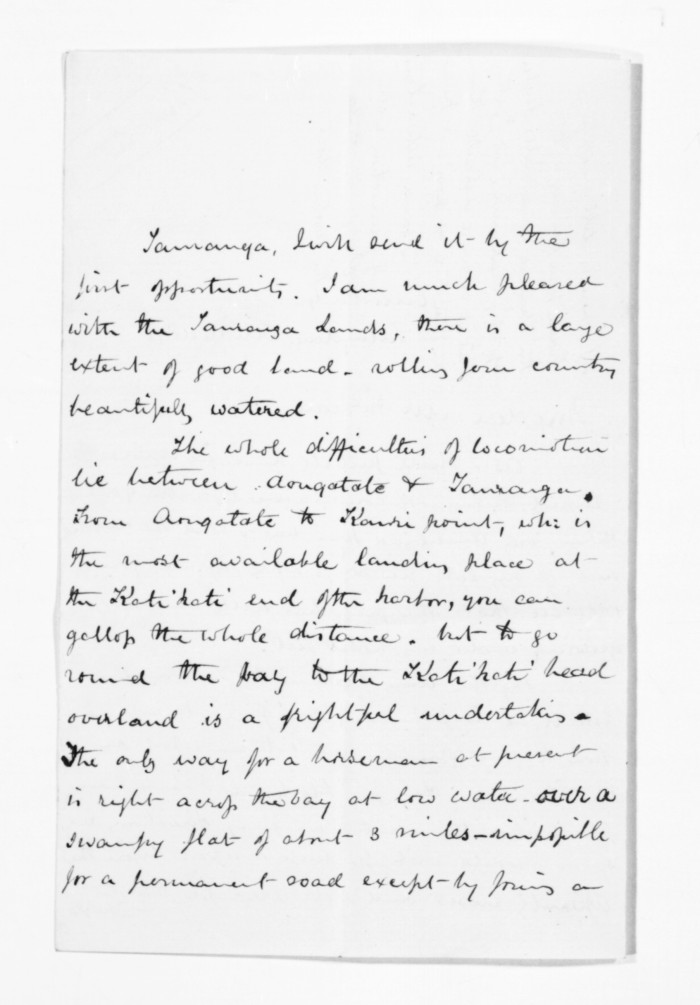 Tauranga, I will send it by the
first opportunity. I am much pleased
with the Tauranga Lands, there is a large
extent of good land - rolling fern country
beautifully watered.
The whole difficulties of locomotion
lie between Aongatete & Tauranga.
From Aongatete to Kauri point, wh: is
the most available landing place at
the Kati'kati' end of the harbor, you can
gallop the whole distance. but to go
round the bay to the Kati'kati' head
overland is a frightful undertaking -
The only way for a horseman at present
is right across the bay at low water - over a
swampy flat of about 3 miles - impossible
for a permanent road except by going a